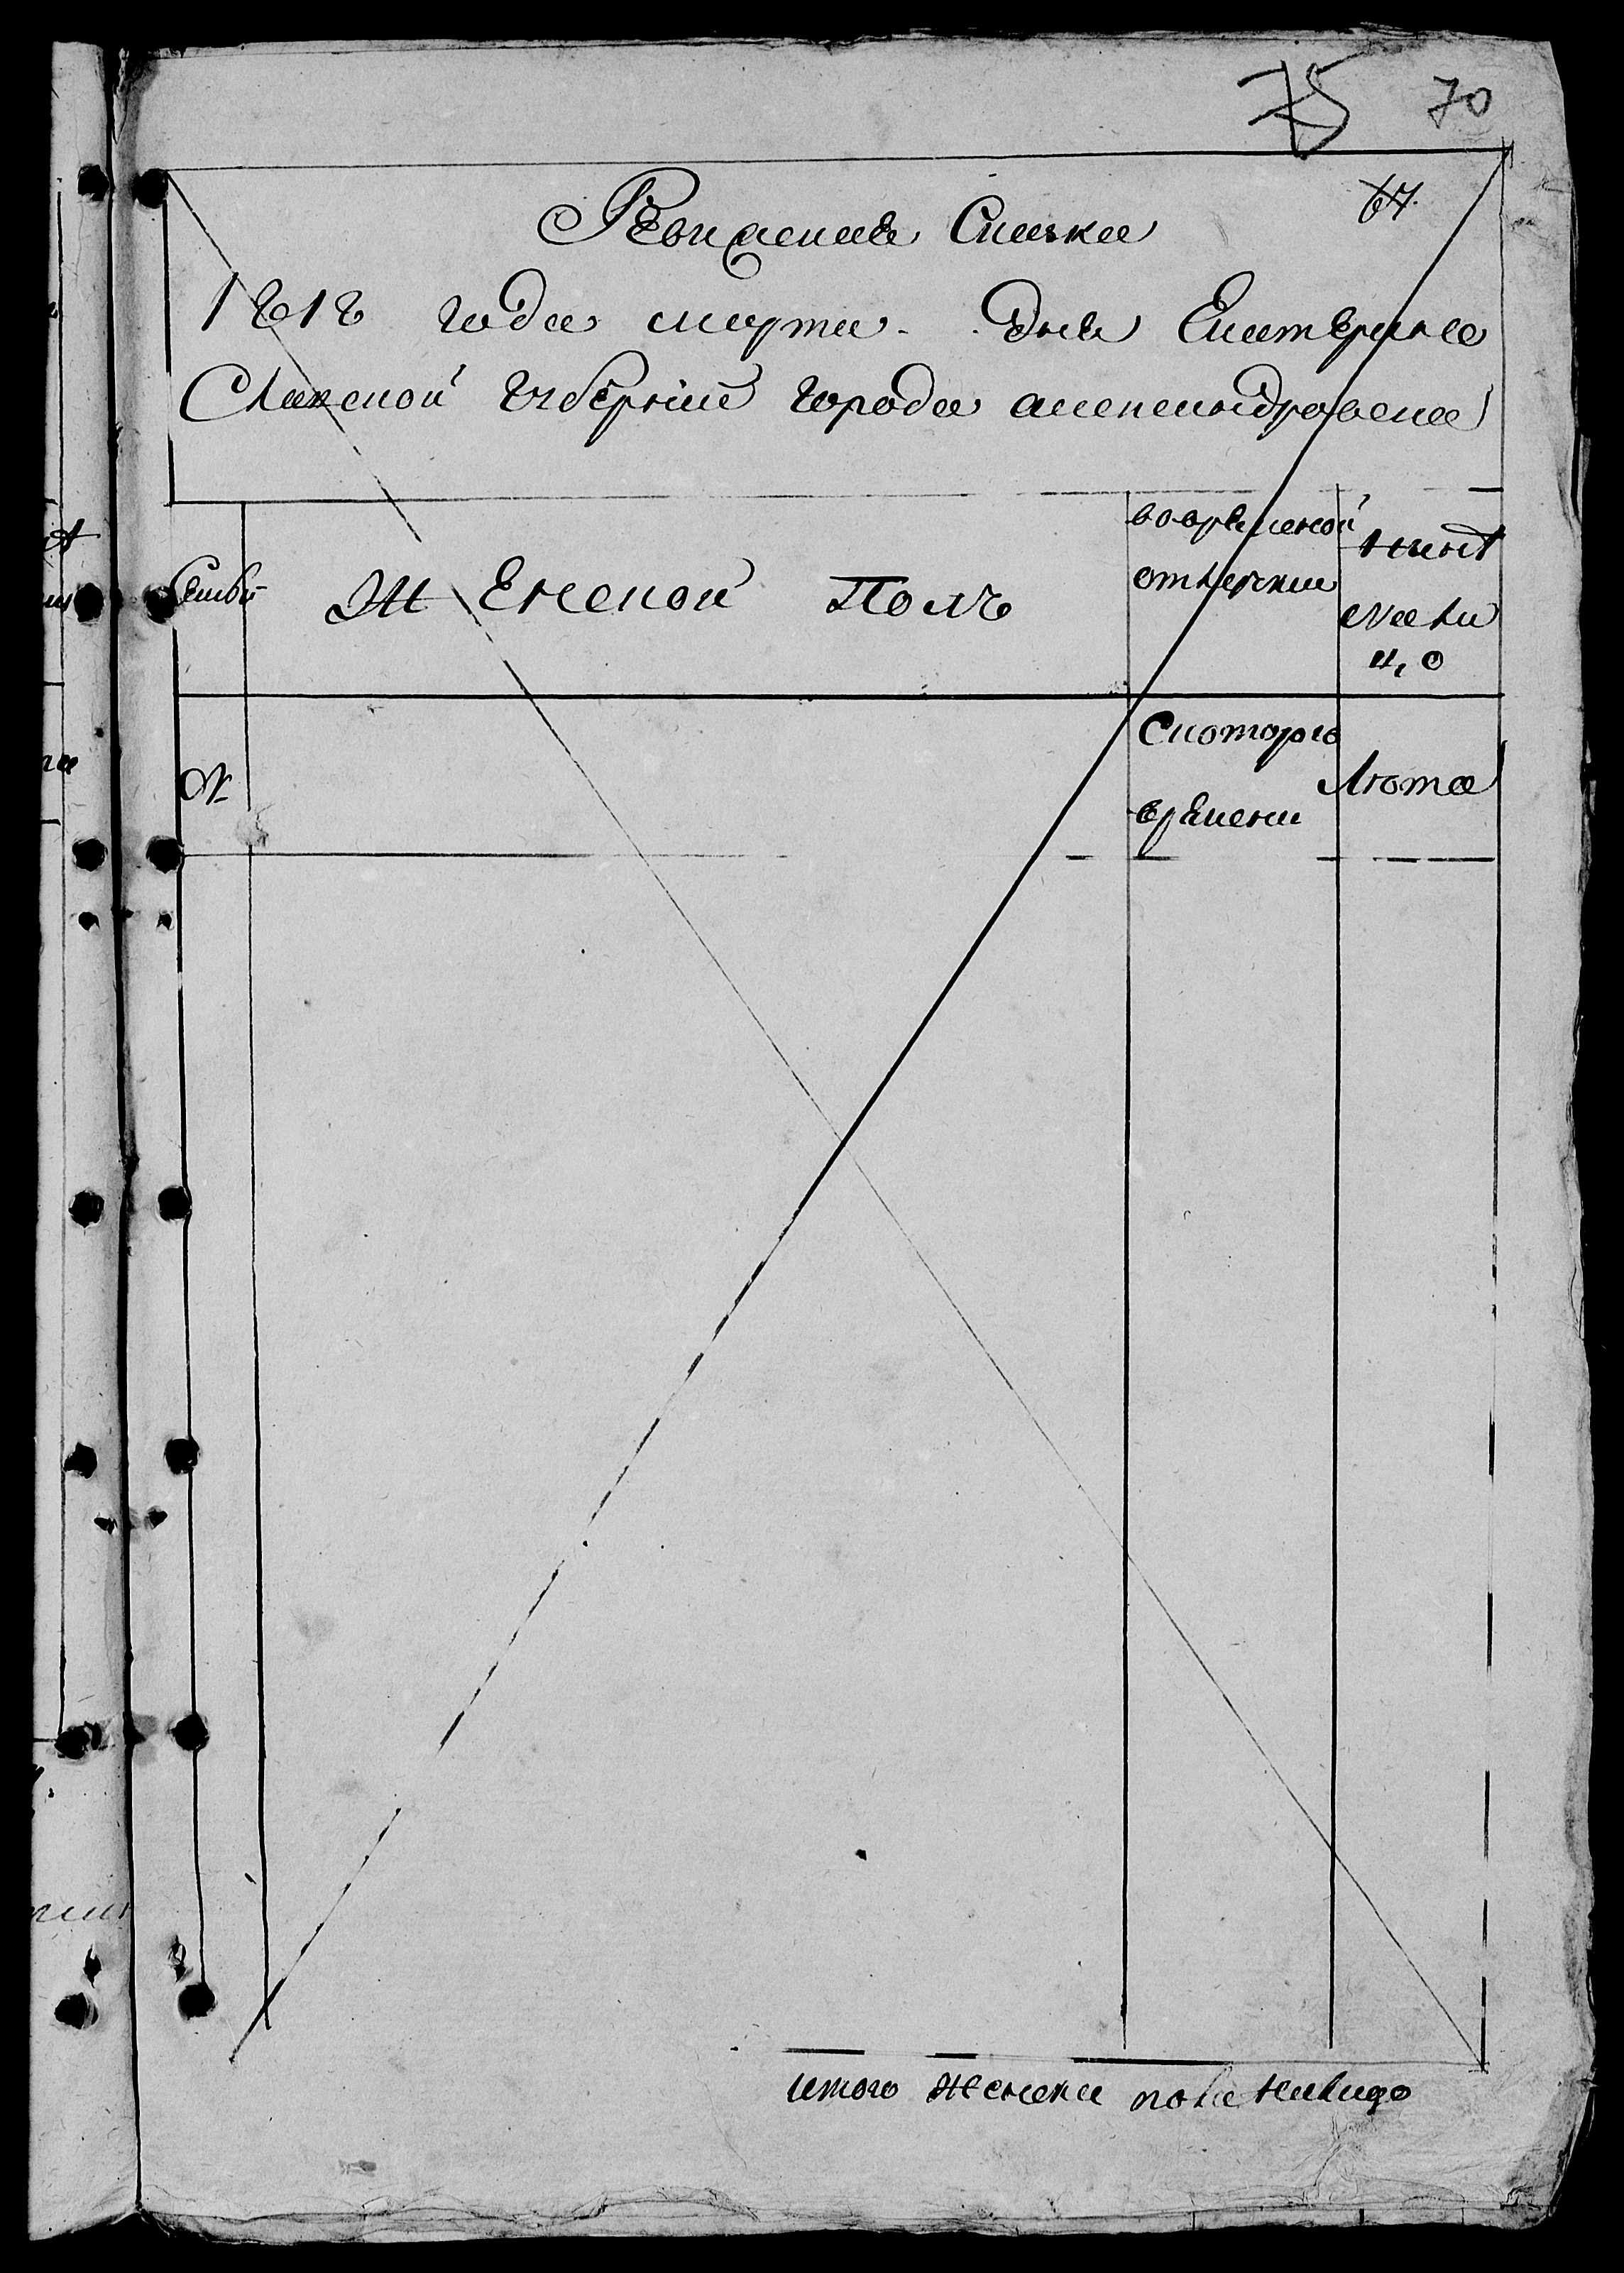 75 70
67
Ревизская Сказка
1818 года марта дня Екатерино
Славской губернии города александровска
Семьи
Женской Полъ
вовременой
отлучки
ныне
На ли
ц, о
№
Скоторго
времени
Лѣта
итого женска пола налицо